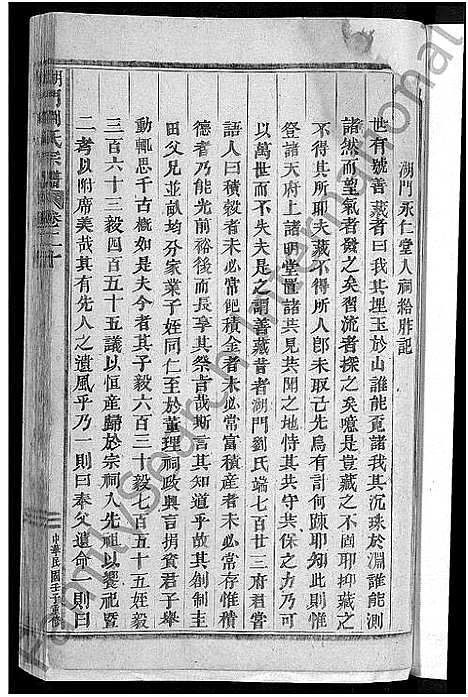 湖門永仁堂入祠給胙記
世有號善藏者曰我其埋玉於山誰能覔諸我其沉珠於淵誰能測
諸然而望氣者發之矣習流者探之矣噫是豈藏之不固耶抑藏之
不得其所耶夫藏不得所人卽未取己先烏有計何踈耶知此則惟
登諸天府上諸明堂置諸共見共聞之地恃其共守共保之力乃可
以萬世而不失夫是之謂善藏昔者湖門劉氏端七百廿三府君嘗
語人曰積穀者未必常飽積金者未必常富積產者未必常存惟積
德者乃能光前裕後而長享其祭旨哉斯言其知道乎故其創制主
田父兄並畝均分家業子姪同仁至於董理祠政興言捐資君子舉
動輒思千古槪如是夫今者其子毅六百三十毅七百五十五姪毅
三百六十三毅四百五十五議以恒產歸於宗祠入先祖以饗祀暨
二考以附席美哉其有先人之遺風乎乃一則曰奉父遺命一則曰
湖門劉氏宗譜 卷二十
中華民國壬子重修
FamilySearch International